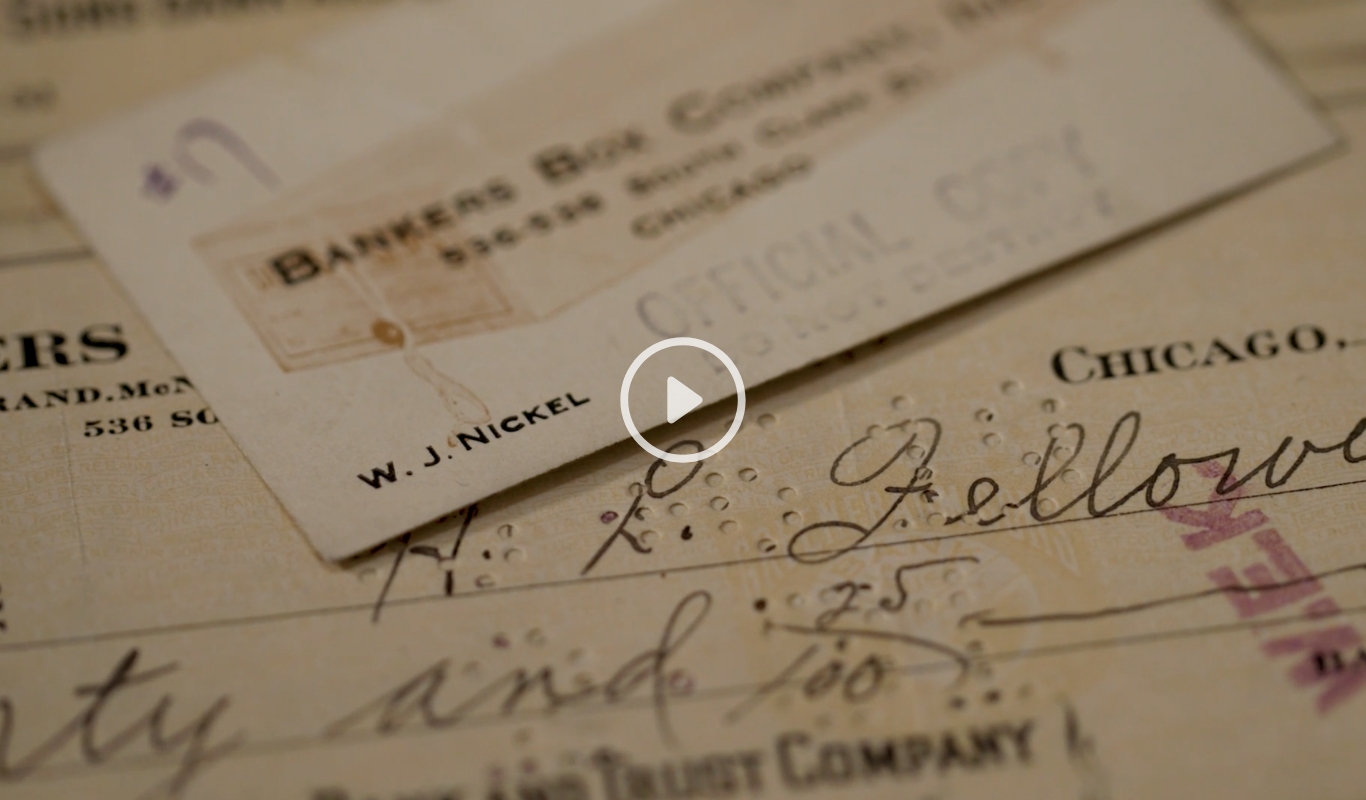 BANKERS BOX COMPANY,
536-538 SOUTH CLARK
CHICAGO
OFFICIAL COPY
DO NOT DESTROY
W. J. NICKEL
ERS
RAND, McN
536 SO
CHICAGO,
H. L. Fellowe
rty and 25/100
W.E.K.
BA
BANK AND TRUST COMPANY